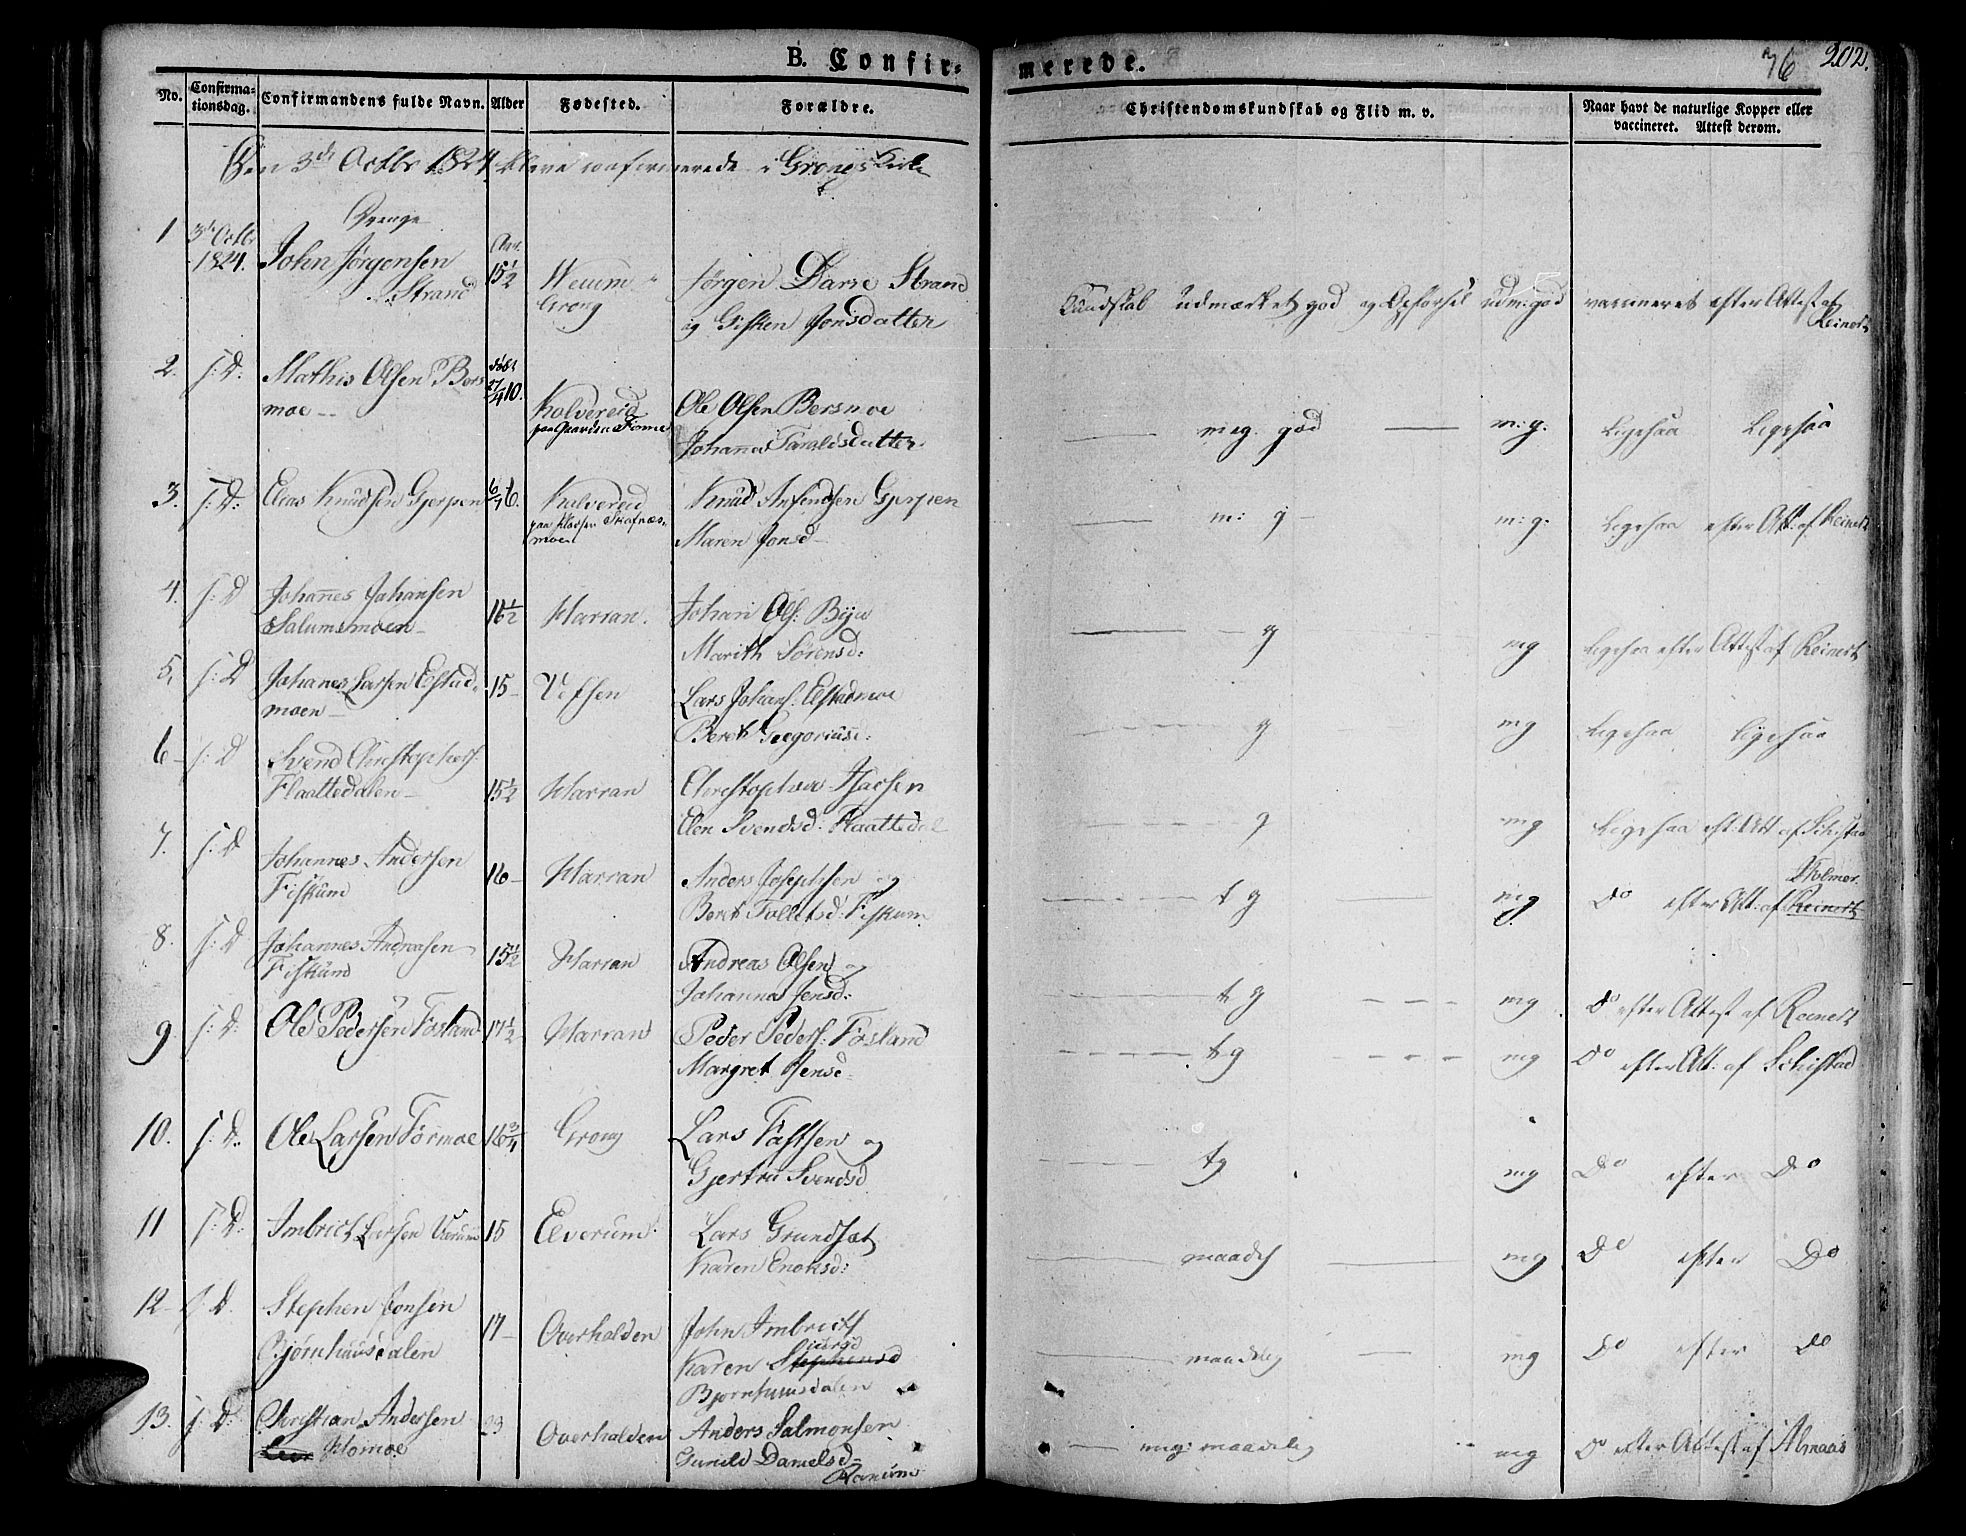 B. Confirmerede.
76 202.
No. Confirmationsdag. Confirmandens fulde Navn. Alder Fødested. Forældre. Christendomskundskab og Flid m. v. Naar havt de naturlige Kopper eller vaccineret. Attest derom.
Den 3de Octbr 1824 bleve confirmerede i Grongs Kirke
Drenge
1 3de Octbr 1824. John Jørgensen Strand 15½ Grong Jørgen Strand og Gisken Jonsdatter Kundskab udmærket god og Opførsel udm: god vaccineret efter Attest af Reinert
2. s: D. Mathis Olsen Bersmoe 10. Kolvereid paa Gaarden Finne Ole Olsen Bersmoe Johanna meg. god m: g. Ligesaa Ligesaa
3. s: D: Elias Knudsen Gjerpen 6/7 6. Kolvereid Knud Gjerpen Maren Jonsd m: g m: g. Ligesaa efter Att: af Reinert
4. s: D Johannes Johansen Salumsmoen 16½ Harran. Johan Ols: Marith Sørensd: g mg Ligesaa efter Attest af Reinert
5. s: D Johanes Larsen Elstadmoen 15 Vefsen Lars Johans: Elstadmoe Beret Gregoriusd: g mg Ligesaa Ligesaa
6 s: D Svend Christophers: Flaattedalen 15½ Harran Christopher Isacsen Elen Svendsd: Flaattedal g mg Ligesaa eft: Att af Schistad
7. s: D Johannes Andersen Fiskum 16 Harran Anders Josephsen og Beret Tolletsd: Fiskum t g mg Do efter Att: af Reinert Holmer
8. s: D Johannes Andreasen Fiskum 15½ Harran Andreas Olsen og Johanna Jensd: t g mg Do efter Attest af Reinert
9 s: D. Ole Pedersen Fosland 17½ Harran Peder Peders: Fosland Margret Jensd t g mg Do efter Att: af Schistad
10. s: D. Ole Larsen Formoe 16¾ Grong Lars og Gjertru Svendsd tg mg Do efter Do
11 s: D: Imbrict Larsen 15 Elverum Lars Grundset Karen Enoksd: maadel mg Do efter Do
12 s: D. Stephen Jonsen Bjørnhuusdalen 17 Overhalden John Imbricts Karen Stephensd Bjørnhuusdalen maadelig mg Do efter Do
13. s: D: Christian Andersen Homoe Overhalden Anders Salmonsen Gunild Danielsd Ranum meg: maadelig mg Do efter Attest af Almaas